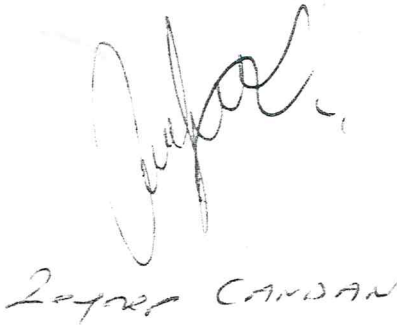 Zeynep CANDAN